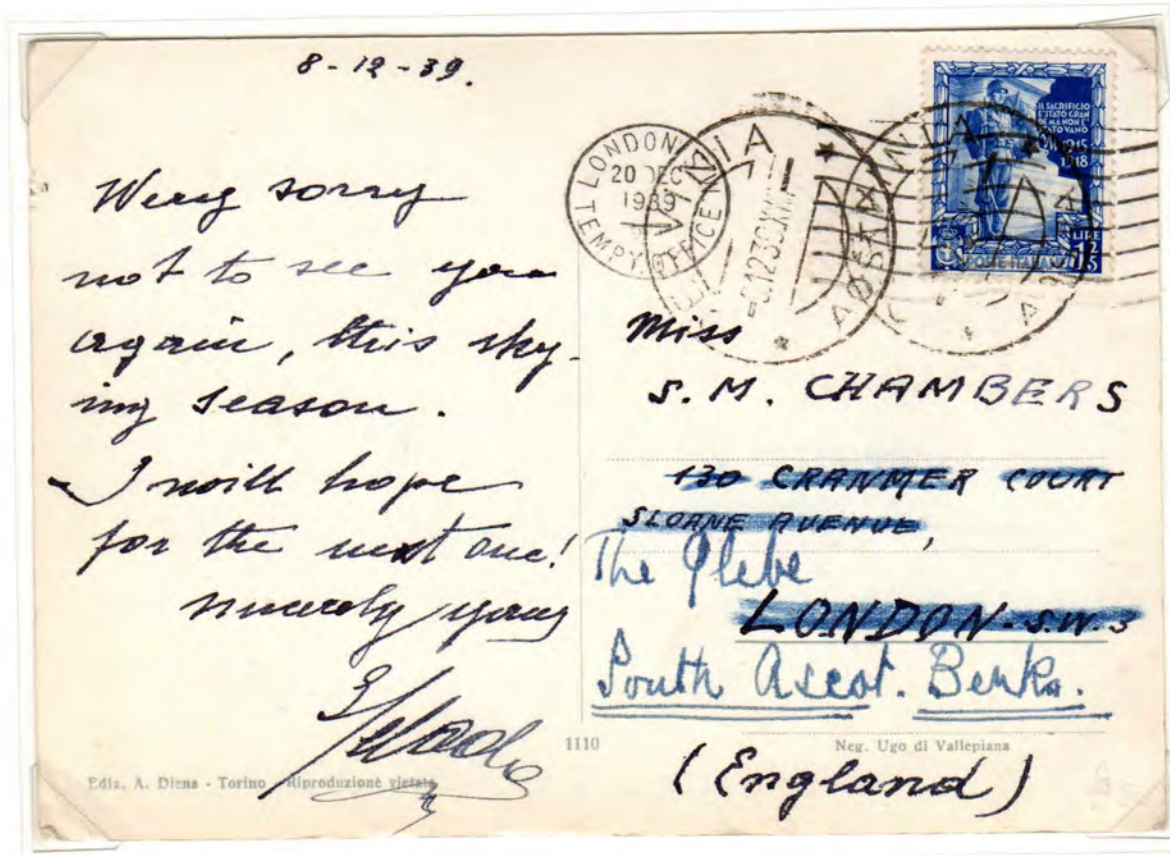 8-12-39.
Wery sorry
not to see you
again, this sky-
ing season.
I will hope
for the next one!
sincerely yours
Ediz. A. Diena - Torino - Riproduzione vietata
1110
LONDON
20 DEC
1939
TEMPY. OFFICE
IL SACRIFICIO
E' STATO GRAN
DE MA NON E'
STATO VANO
1915
1918
LIRE
POSTE ITALIANE
Miss
S. M. CHAMBERS
130 CRANMER COURT
SLOANE AVENUE,
The Glebe
LONDON - S.W. 3
South Ascot. Berks.
Neg. Ugo di Vallepiana
(England)